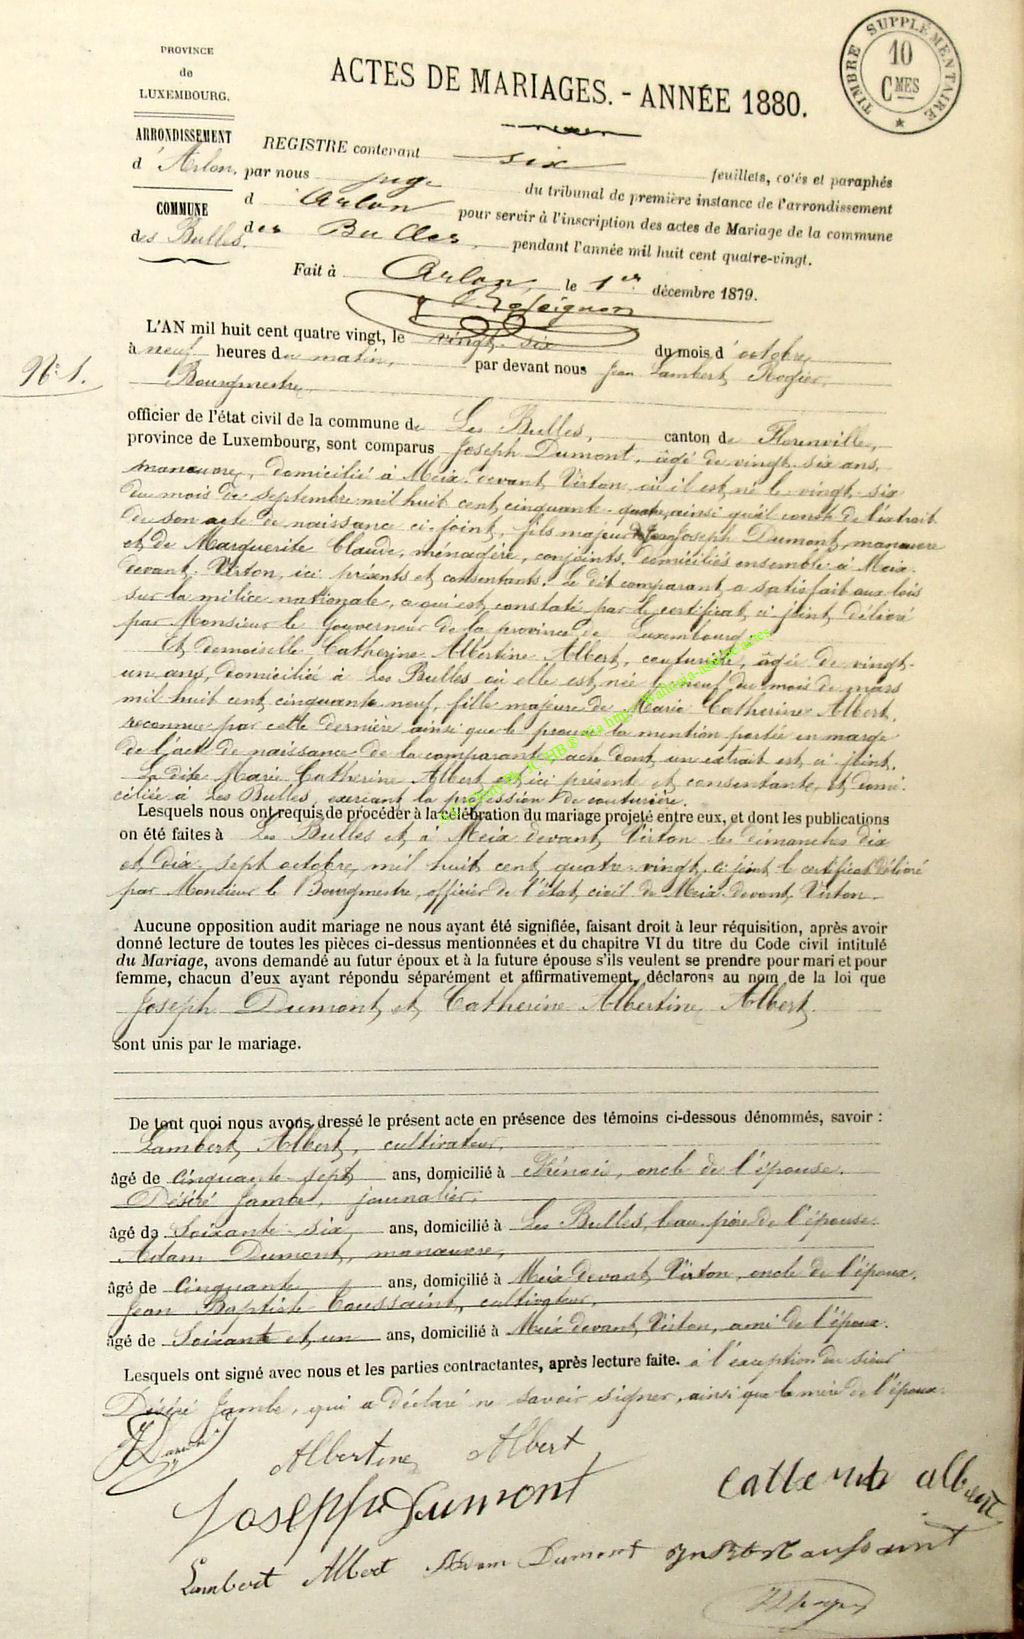 PROVINCE
de
LUXEMBOURG.
ARRONDISSEMENT
d'Arlon.
COMMUNE
des Bulles.
TIMBRE SUPPLÉMENTAIRE
10
CMES
ACTES DE MARIAGES. - ANNÉE 1880.
REGISTRE contenant six feuillets, cotés et paraphés
par nous juge du tribunal de première instance de l'arrondissement
d Arlon pour servir à l'inscription des actes de Mariage de la commune
des Bulles, pendant l'année mil huit cent quatre-vingt.
Fait à Arlon, le 1er décembre 1879.
N° 1.
L'AN mil huit cent quatre vingt, le vingt-six du mois d'octobre,
à neuf heures du matin, par devant nous Jean Lambert Rogier,
Bourgmestre
officier de l'état civil de la commune de Les Bulles, canton de Florenville,
province de Luxembourg, sont comparus Joseph Dumont, âgé de vingt-six ans,
manœuvre, domicilié à Meix-devant-Virton où il est né le vingt-six
du mois de septembre mil huit cent cinquante-quatre, ainsi qu'il conste de l'extrait
de son acte de naissance ci-joint, fils majeur de Jean Joseph Dumont, manœuvre
et de Marguerite Claude, ménagère, conjoints, domiciliés ensemble à Meix-
devant-Virton, ici présents et consentants. Le dit comparant a satisfait aux lois
sur la milice nationale, ce qui est constaté par le certificat ci-joint délivré
par Monsieur le Gouverneur de la province de Luxembourg.
Et demoiselle Catherine Albertine Albert, couturière, âgée de vingt-
un ans, domiciliée à Les Bulles où elle est née le neuf du mois de mars
mil huit cent cinquante neuf, fille majeure de Marie Catherine Albert,
reconnue par cette dernière ainsi que le prouve la mention portée en marge
de l'acte de naissance de la comparante, acte dont un extrait est ci-joint.
La dite Marie Catherine Albert est ici présente et consentante, et domi-
ciliée à Les Bulles, exerçant la profession de couturière.
Lesquels nous ont requis de procéder à la célébration du mariage projeté entre eux, et dont les publications
on été faites à Les Bulles et à Meix-devant-Virton les dimanches dix
et dix-sept octobre mil huit cent quatre-vingt, ci-joint le certificat délivré
par Monsieur le Bourgmestre, officier de l'état civil de Meix-devant-Virton.
Aucune opposition audit mariage ne nous ayant été signifiée, faisant droit à leur réquisition, après avoir
donné lecture de toutes les pièces ci-dessus mentionnées et du chapitre VI du titre du Code civil intitulé
du Mariage, avons demandé au futur époux et à la future épouse s'ils veulent se prendre pour mari et pour
femme, chacun d'eux ayant répondu séparément et affirmativement, déclarons au nom de la loi que
Joseph Dumont et Catherine Albertine Albert
sont unis par le mariage.
De tout quoi nous avons dressé le présent acte en présence des témoins ci-dessous dénommés, savoir :
Lambert Albert, cultivateur,
âgé de Cinquante-sept ans, domicilié à oncle de l'épouse.
Désiré Jambe, journalier,
âgé de Soixante-six ans, domicilié à Les Bulles, beau-père de l'épouse.
Adam Dumont, manœuvre,
âgé de Cinquante ans, domicilié à Meix-devant-Virton, oncle de l'époux.
Jean Baptiste Toussaint, cultivateur,
âgé de Soixante et un ans, domicilié à Meix-devant-Virton, ami de l'époux.
Lesquels ont signé avec nous et les parties contractantes, après lecture faite. à l'exception du sieur
Désiré Jambe, qui a déclaré ne savoir signer, ainsi que la mère de l'époux.
Albertine Albert
Joseph Dumont
Catterine albert
Lambert Albert Adam Dumont Toussaint